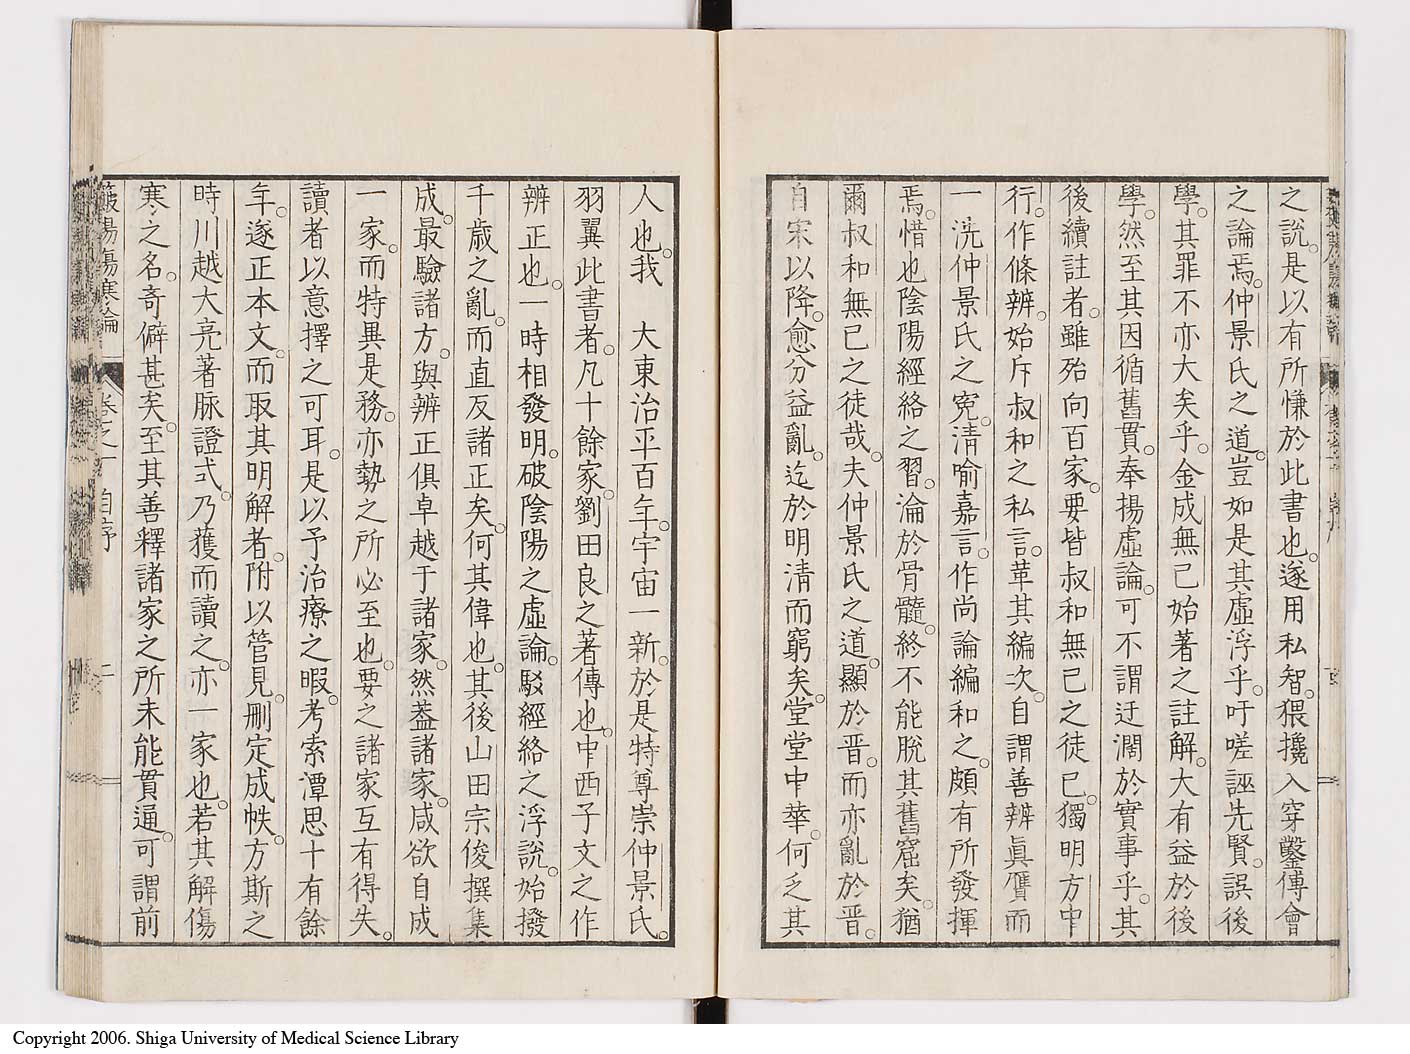 之說。是以有所慊於此書也。遂用私智。猥攙入穿鑿傅會
之論焉。仲景氏之道。豈如是其虛浮乎。吁嗟誣先賢。誤後
學。其罪不亦大矣乎。金成無己始著之註解。大有益於後
學。然至其因循舊貫。奉揚虛論。可不謂迂濶於實事乎。其
後續註者。雖殆向百家。要皆叔和無己之徒已。獨明方中
行。作條辨。始斥叔和之私言。革其編次。自謂善辨眞贋而
一洗仲景氏之寃。清喻嘉言。作尚論編和之。頗有所發揮
焉。惜也陰陽經絡之習。淪於骨髓。終不能脫其舊窟矣。猶
爾叔和無己之徒哉。夫仲景氏之道。顯於晋。而亦亂於晋。
自宋以降。愈分益亂。迄於明清而窮矣。堂堂中華。何乏其
人也。我　大東治平百年。宇宙一新。於是特尊崇仲景氏。
羽翼此書者。凡十餘家。劉田良之著傳也。中西子文之作
辨正也。一時相發明。破陰陽之虛論。駁經絡之浮說。始撥
千歳之亂。而直反諸正矣。何其偉也。其後山田宗俊撰集
成。最驗諸方。與辨正俱卓越于諸家。然葢諸家。咸欲自成
一家。而特異是務。亦勢之所必至也。要之諸家互有得失。
讀者以意擇之可耳。是以予治療之暇。考索潭思十有餘
年。遂正本文。而取其明解者。附以管見。刪定成帙。方斯之
時川越大亮著脉證式。乃獲而讀之。亦一家也。若其解傷
寒之名。奇僻甚矣。至其善釋諸家之所未能貫通。可謂前
傷寒論　卷之一　自序　二